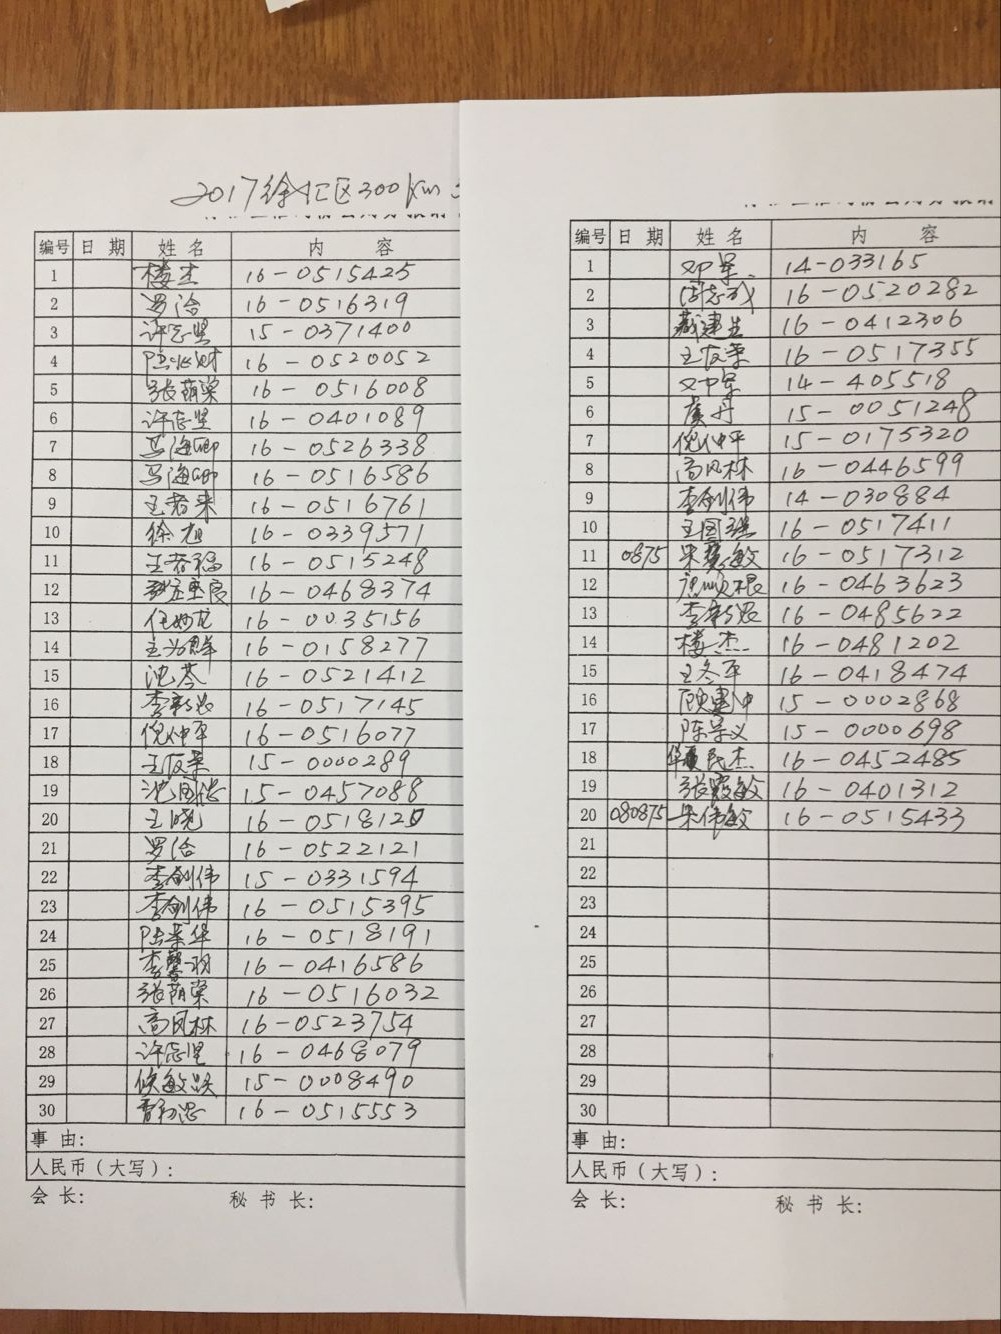 2017徐汇区300km
编号 日 期 姓 名 内 容
1 楼杰 16-0515425
2 罗洽 16-0516319
3 许志坚 15-0371400
4 16-0520052
5 张荫梁 16-0516008
6 许志坚 16-0401089
7 马海卿 16-0526338
8 马海卿 16-0516586
9 王者来 16-0516761
10 徐旭 16-0339571
11 王者福 16-0515248
12 16-0468374
13 16-0035156
14 16-0158277
15 沈芩 16-0521412
16 李新忠 16-0517145
17 倪仲平 16-0516077
18 王仮荣 15-0000289
19 15-0457088
20 王晓 16-0518125
21 罗洽 16-0522121
22 李剑伟 15-0331594
23 李剑伟 16-0515395
24 陆荣华 16-0518191
25 李馨羽 16-0416586
26 张荫梁 16-0516032
27 高风林 16-0523754
28 许志坚 16-0468079
29 侯敏跃 15-0008490
30 16-0515553
事 由:
人民币（大写）:
会 长: 秘 书 长:
编号 日 期 姓 名 内 容
1 邓军 14-033165
2 16-0520282
3 戴建生 16-0412306
4 16-0517355
5 邓军 14-405518
6 虞丹 15-0051248
7 倪仲平 15-0175320
8 高风林 16-0446599
9 李剑伟 14-030884
10 王国强 16-0517411
11 0875 朱慧敏 16-0517312
12 16-0463623
13 李新忠 16-0485622
14 楼杰 16-0481202
15 王冬平 16-0418474
16 顾建冲 15-0002868
17 陈景义 15-0000698
18 华民杰 16-0452485
19 张霞敏 16-0401312
20 080875 朱伟敏 16-0515433
21
22
23
24
25
26
27
28
29
30
事 由:
人民币（大写）:
会 长: 秘 书 长: